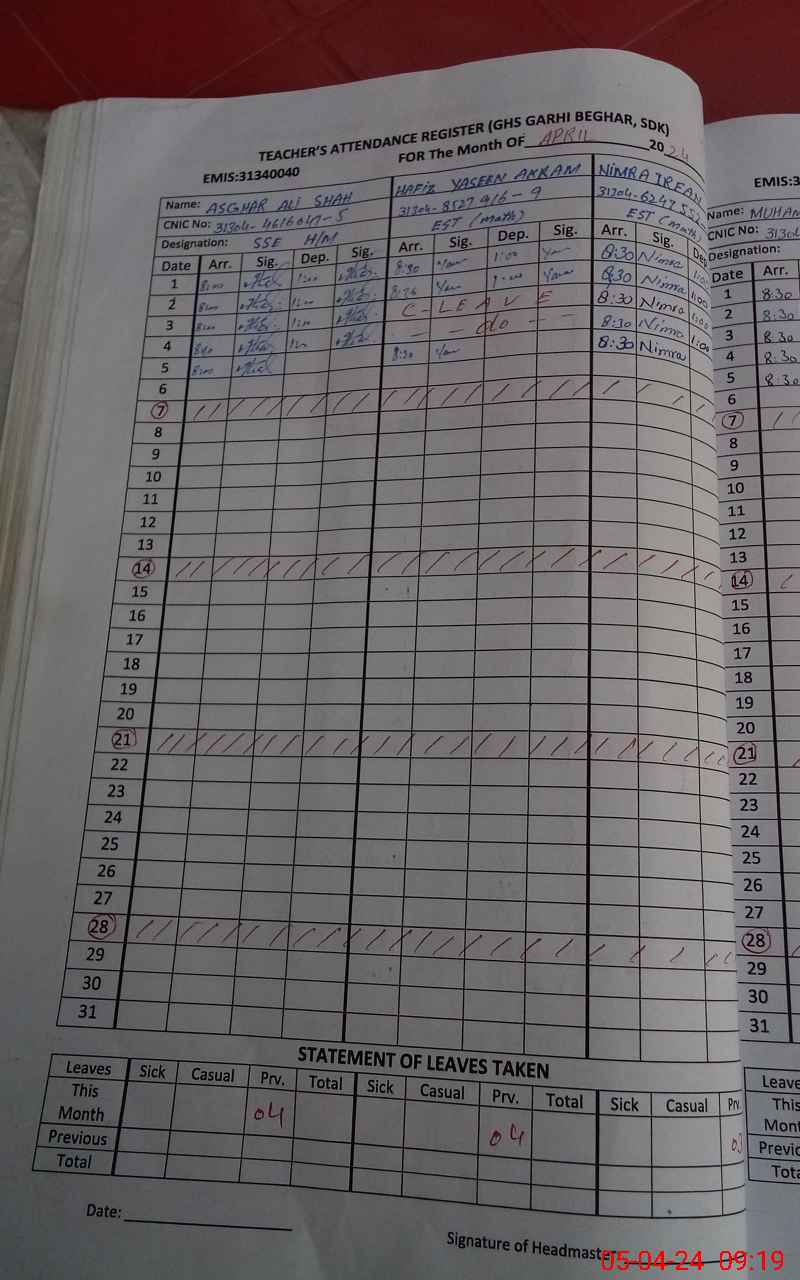 TEACHER'S ATTENDANCE REGISTER (GHS GARHI BEGHAR, SDK)
EMIS:31340040 FOR The Month OF APRIL 2024
Name: ASGHAR ALI SHAH HAFIZ YASEEN AKRAM NIMRA IREAN
CNIC No: 31304-4616047-5 31304-8527916-9 31304-6247
Designation: SSE H/M EST (math) EST (Math)
Date Arr. Sig. Dep. Sig. Arr. Sig. Dep. Sig. Arr. Sig. Dep
1 8:00 1:00 8:30 1:00 8:30 Nimra 1:00
2 8:00 1:00 1:00 8:30 Nimra 1:00
3 8:00 1:00 C-LEAVE 8:30 Nimra 1:00
4 8:00 - - do - - 8:30 Nimra 1:00
5 8:00 8:30 8:30 Nimra
6
7
8
9
10
11
12
13
14
15
16
17
18
19
20
21
22
23
24
25
26
27
28
29
30
31
STATEMENT OF LEAVES TAKEN
Leaves Sick Casual Prv. Total Sick Casual Prv. Total Sick Casual Prv
This Month 04 04
Previous
Total
Date:
Signature of Headmaster
EMIS:3
Name: MUHAM
CNIC No: 31304
Designation:
Date Arr.
1 8:30
2 8:30
3 8:30
4 8:30
5 8:30
6
7
8
9
10
11
12
13
14
15
16
17
18
19
20
21
22
23
24
25
26
27
28
29
30
31
Leave
This
Mont
Previo
Tota
05-04-24 09:19